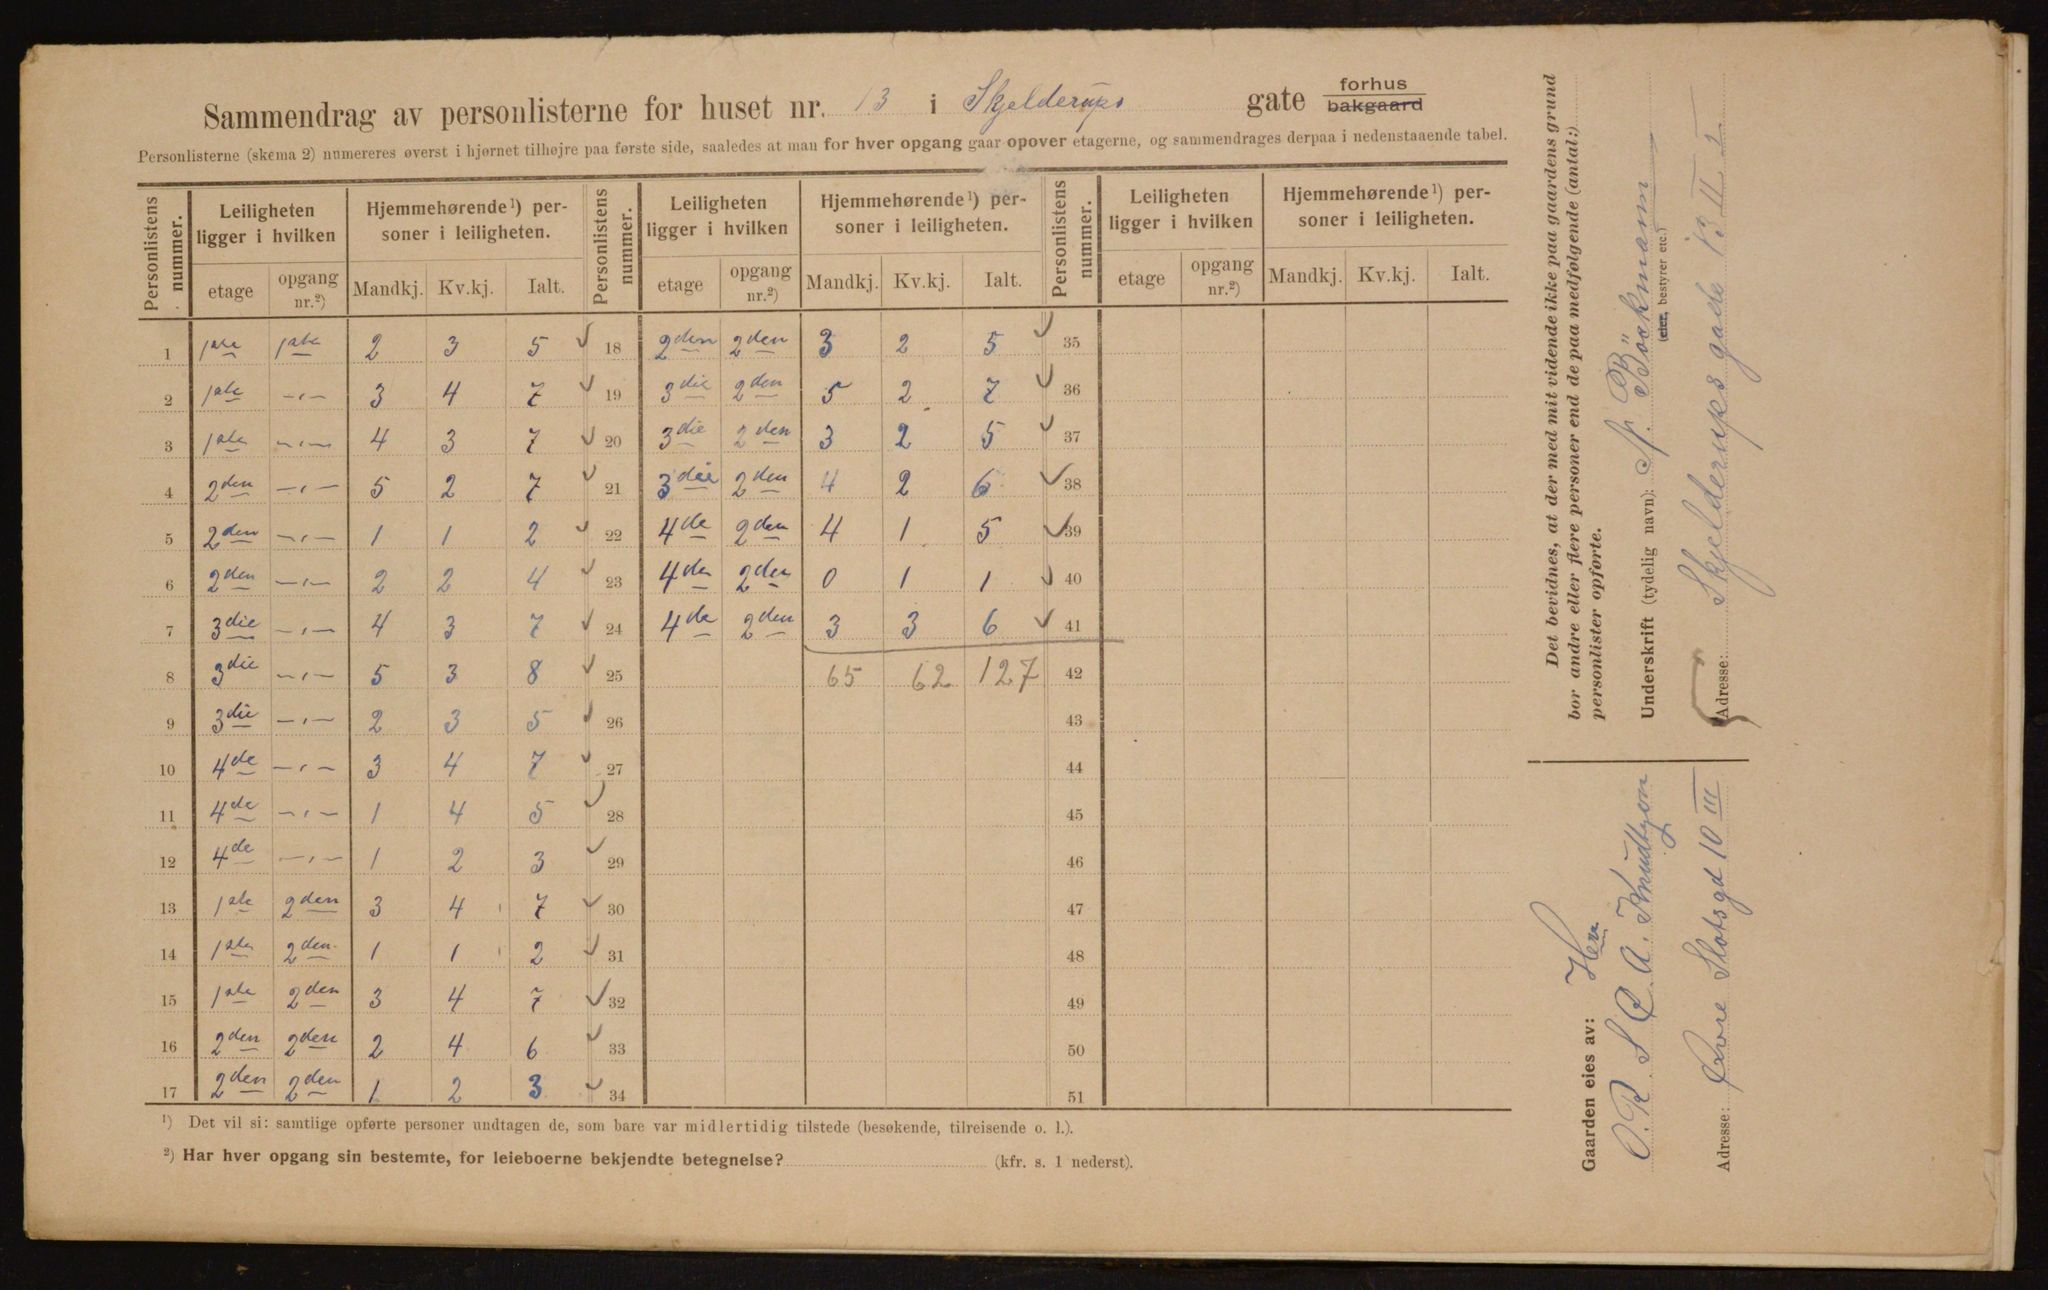 Sammendrag av personlisterne for huset nr. 13 i Skjelderups gate forhus
bakgaard
Personlisterne (skema 2) numereres øverst i hjørnet tilhøjre paa første side, saaledes at man for hver opgang gaar opover etagerne, og sammendrages derpaa i nedenstaaende tabel.
Personlistens nummer. Leiligheten ligger i hvilken Hjemmehørende¹) personer i leiligheten. Personlistens nummer. Leiligheten ligger i hvilken Hjemmehørende¹) personer i leiligheten. Personlistens nummer. Leiligheten ligger i hvilken Hjemmehørende¹) personer i leiligheten.
etage opgang nr.²) Mandkj. Kv.kj. Ialt. etage opgang nr.²) Mandkj. Kv.kj. Ialt. etage opgang nr.²) Mandkj. Kv.kj. Ialt.
1 1ste 1ste 2 3 5 18 2den 2den 3 2 5 35
2 1ste -„- 3 4 7 19 3die 2den 5 2 7 36
3 1ste -„- 4 3 7 20 3die 2den 3 2 5 37
4 2den -„- 5 2 7 21 3die 2den 4 2 6 38
5 2den -„- 1 1 2 22 4de 2den 4 1 5 39
6 2den -„- 2 2 4 23 4de 2den 0 1 1 40
7 3die -„- 4 3 7 24 4de 2den 3 3 6 41
8 3die -„- 5 3 8 25 65 62 127 42
9 3die -„- 2 3 5 26 43
10 4de -„- 3 4 7 27 44
11 4de -„- 1 4 5 28 45
12 4de -„- 1 2 3 29 46
13 1ste 2den 3 4 7 30 47
14 1ste 2den 1 1 2 31 48
15 1ste 2den 3 4 7 32 49
16 2den 2den 2 4 6 33 50
17 2den 2den 1 2 3 34 51
¹) Det vil si: samtlige opførte personer undtagen de, som bare var midlertidig tilstede (besøkende, tilreisende o. l.).
²) Har hver opgang sin bestemte, for leieboerne bekjendte betegnelse? (kfr. s. 1 nederst).
Det bevidnes, at der med mit vidende ikke paa gaardens grund
bor andre eller flere personer end de paa medfølgende (antal:)
personlister opførte.
Underskrift (tydelig navn): Böckmann
(eier, bestyrer etc.)
Adresse: Skjelderups gade 13 II
Gaarden eies av: Herr
O. R S Q A. Knudtzon
Adresse: Øvre Slotsgd 10 III